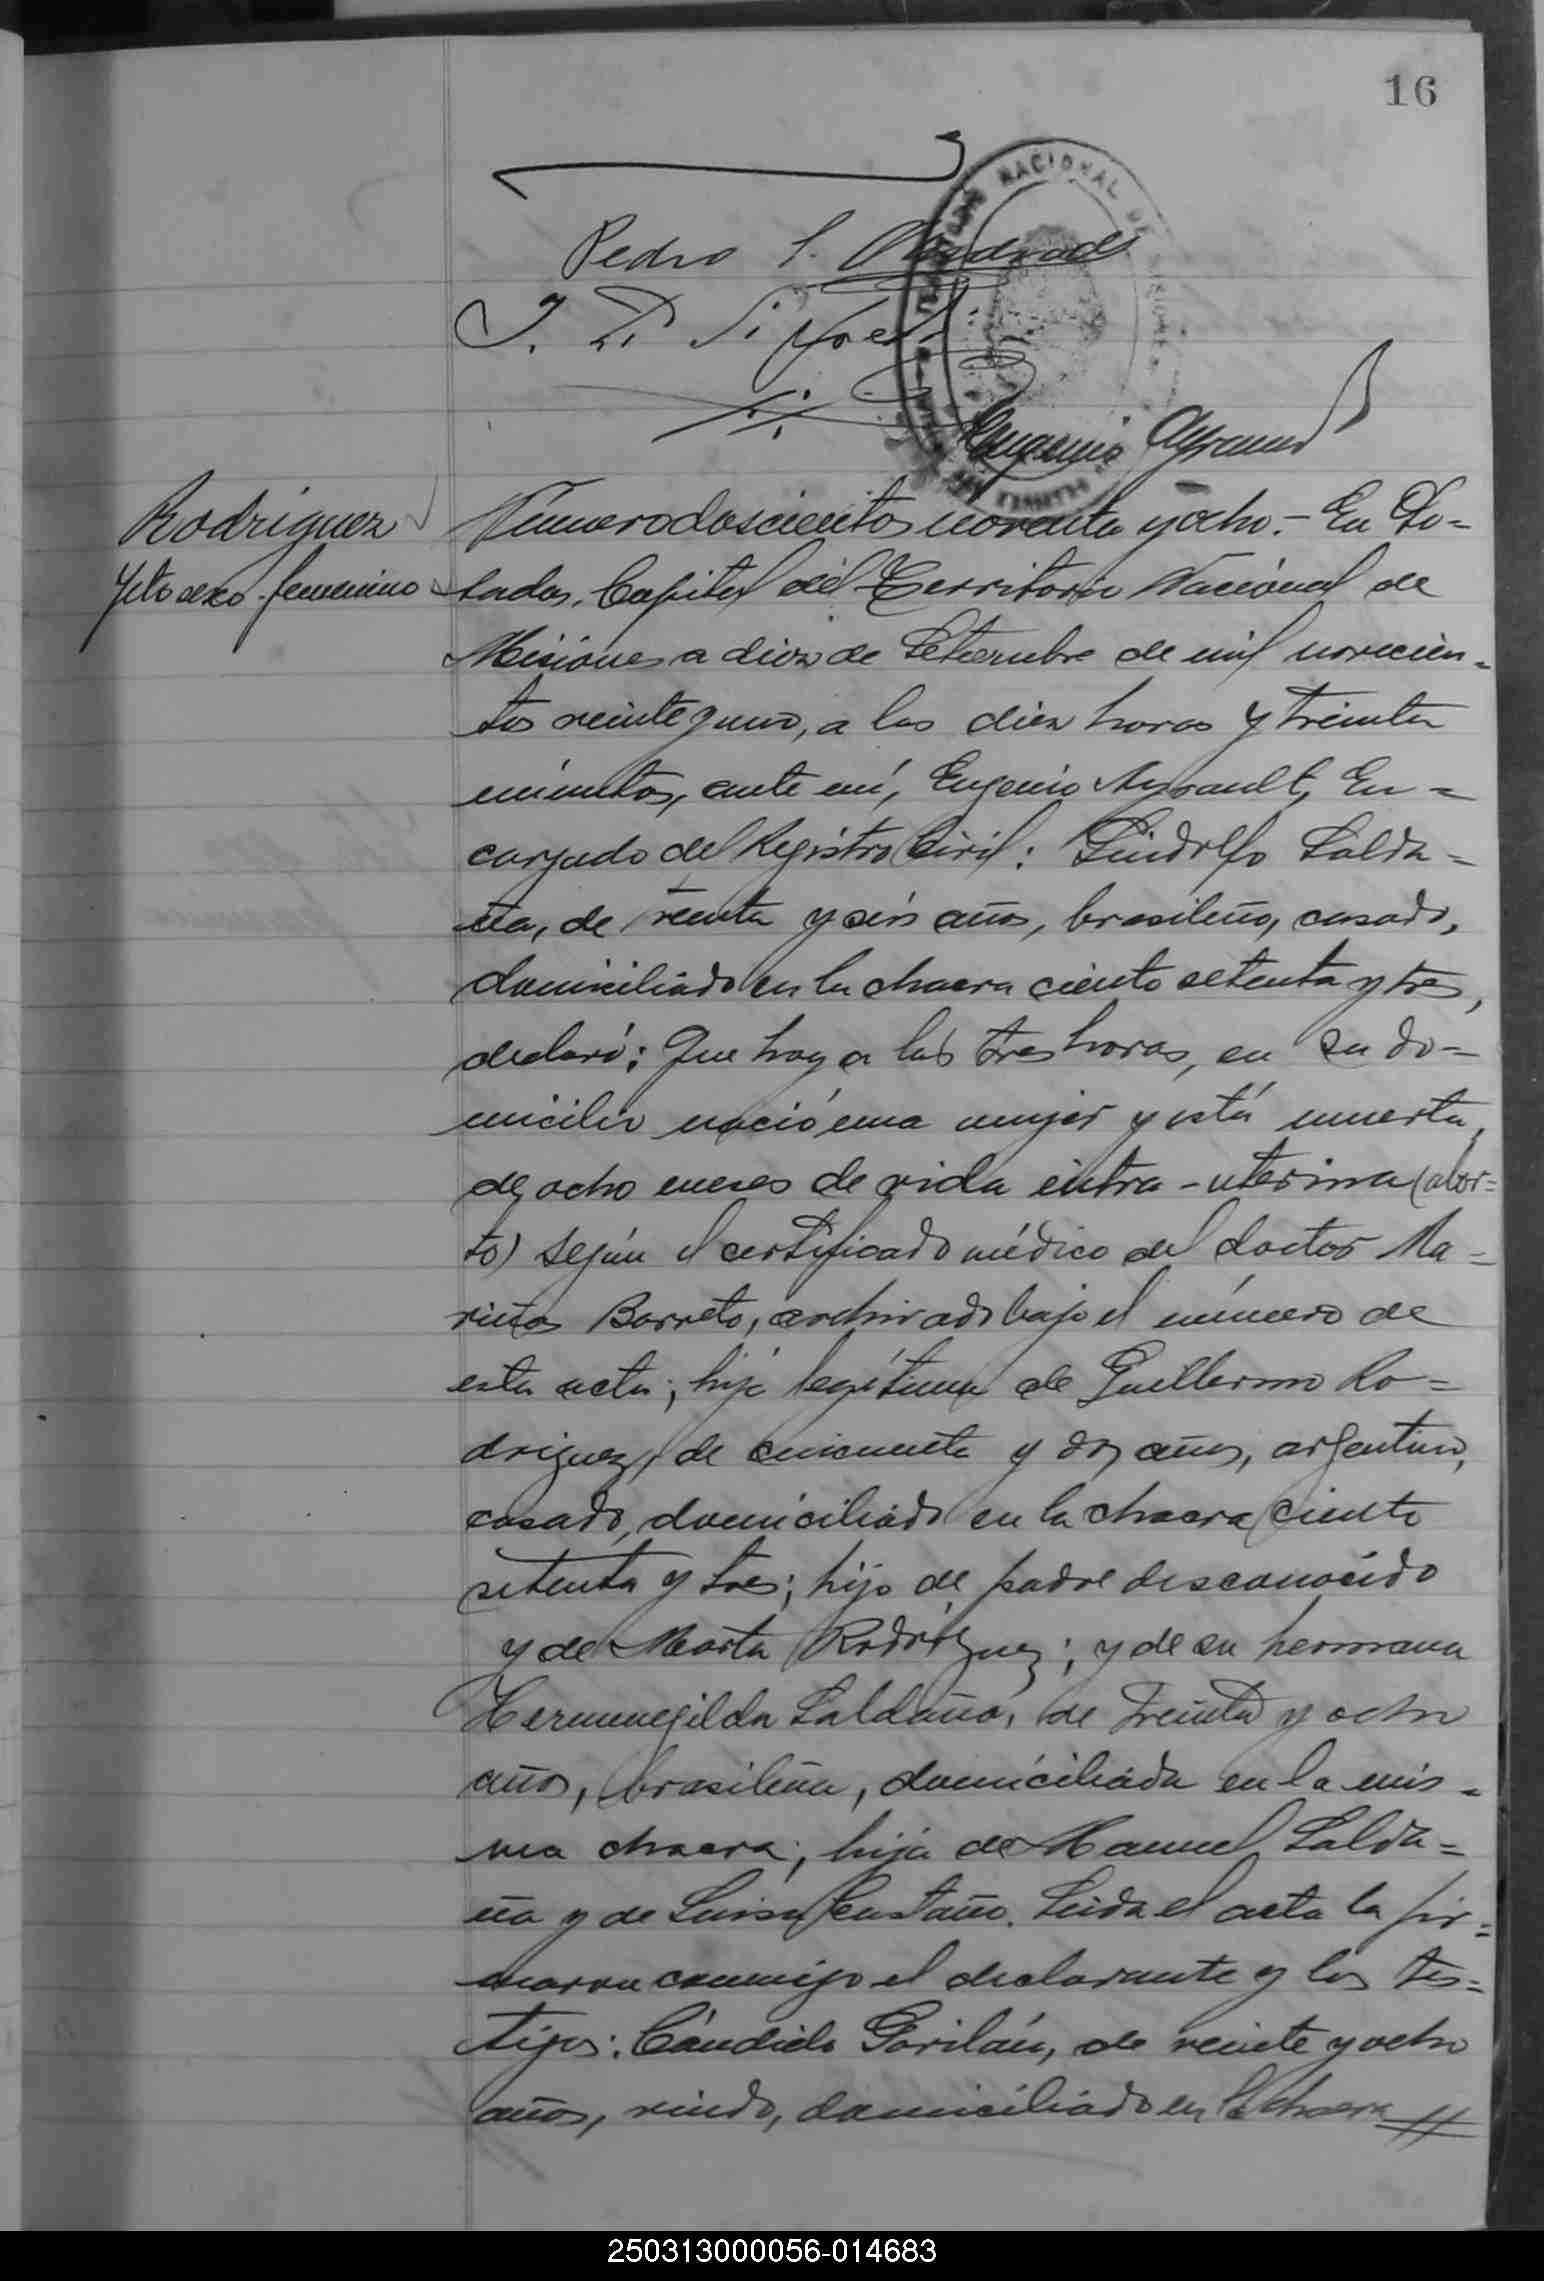 16
NACIONAL DE
Pedro
Eugenio
Rodriguez
feto sexo femenino
Numero doscientos noventa y ocho.- En Po=
sadas, Capital del Territorio Nacional de
Misiones a diez de Setiembre de mil novecien=
tos veinte y uno, a las diez horas y treinta
minutos, ante mí, Eugenio Ayrault, En=
cargado del Registro Civil: Lindolfo Salda=
ña, de treinta y seis años, brasileño, casado,
domiciliado en la chacra ciento setenta y tres,
declaró: Que hoy a las tres horas, en su do=
micilio nació una mujer y está muerta,
de ocho meses de vida intra-uterina (abor=
to) según el certificado médico del doctor Ma=
rino Barreto, archivado bajo el número de
esta acta; hija legítima de Guillermo Ro=
driguez, de cincuenta y dos años, argentino,
casado, domiciliado en la chacra ciento
setenta y tres; hijo de padre desconocido
y de Marta Rodriguez; y de su hermana
Hermenegilda Saldaña, de treinta y ocho
años, brasileña, domiciliada en la mis=
ma chacra; hija de Manuel Salda=
ña y de Luisa. Leida el acta la fir=
maron conmigo el declarante y los tes=
tigos: Cándido Gavilán, de veinte y ocho
años, viudo, domiciliado en la chacra //
250313000056-014683